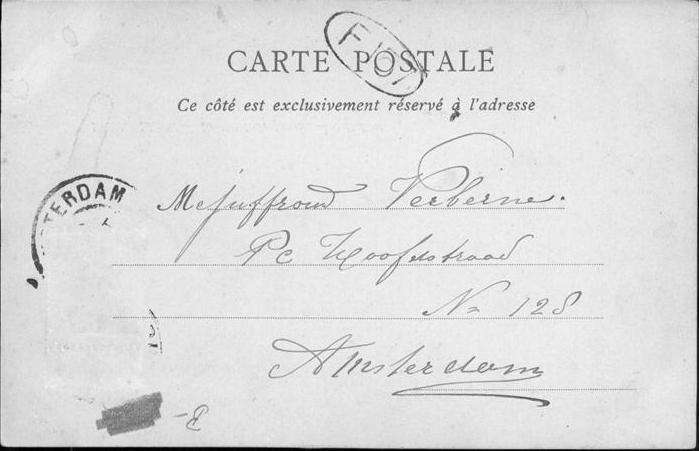 CARTE POSTALE
Ce côté est exclusivement réservé à l'adresse
TERDAM
Mejuffroud Verberne.
Pc Hoofdstraat
No 128
Amsterdam